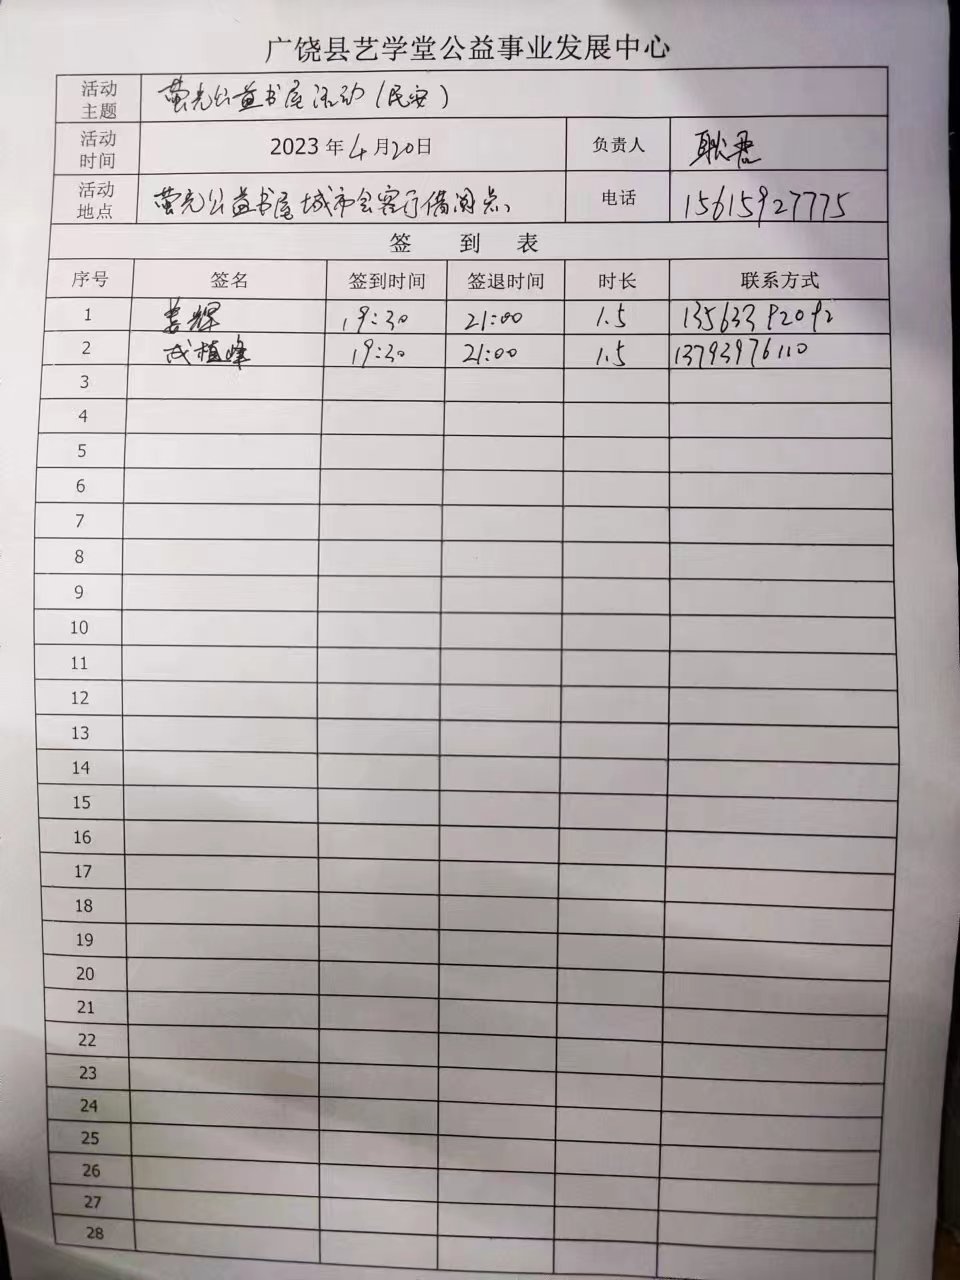 广饶县艺学堂公益事业发展中心
活动主题 萤光公益书屋活动(民安)
活动时间 2023年4月20日 负责人 耿君
活动地点 萤光公益书屋城市会客厅借阅点 电话 15615927775
签到表
序号 签名 签到时间 签退时间 时长 联系方式
1 姜辉 19:30 21:00 1.5 13563392092
2 成植峰 19:30 21:00 1.5 13793976110
3
4
5
6
7
8
9
10
11
12
13
14
15
16
17
18
19
20
21
22
23
24
25
26
27
28